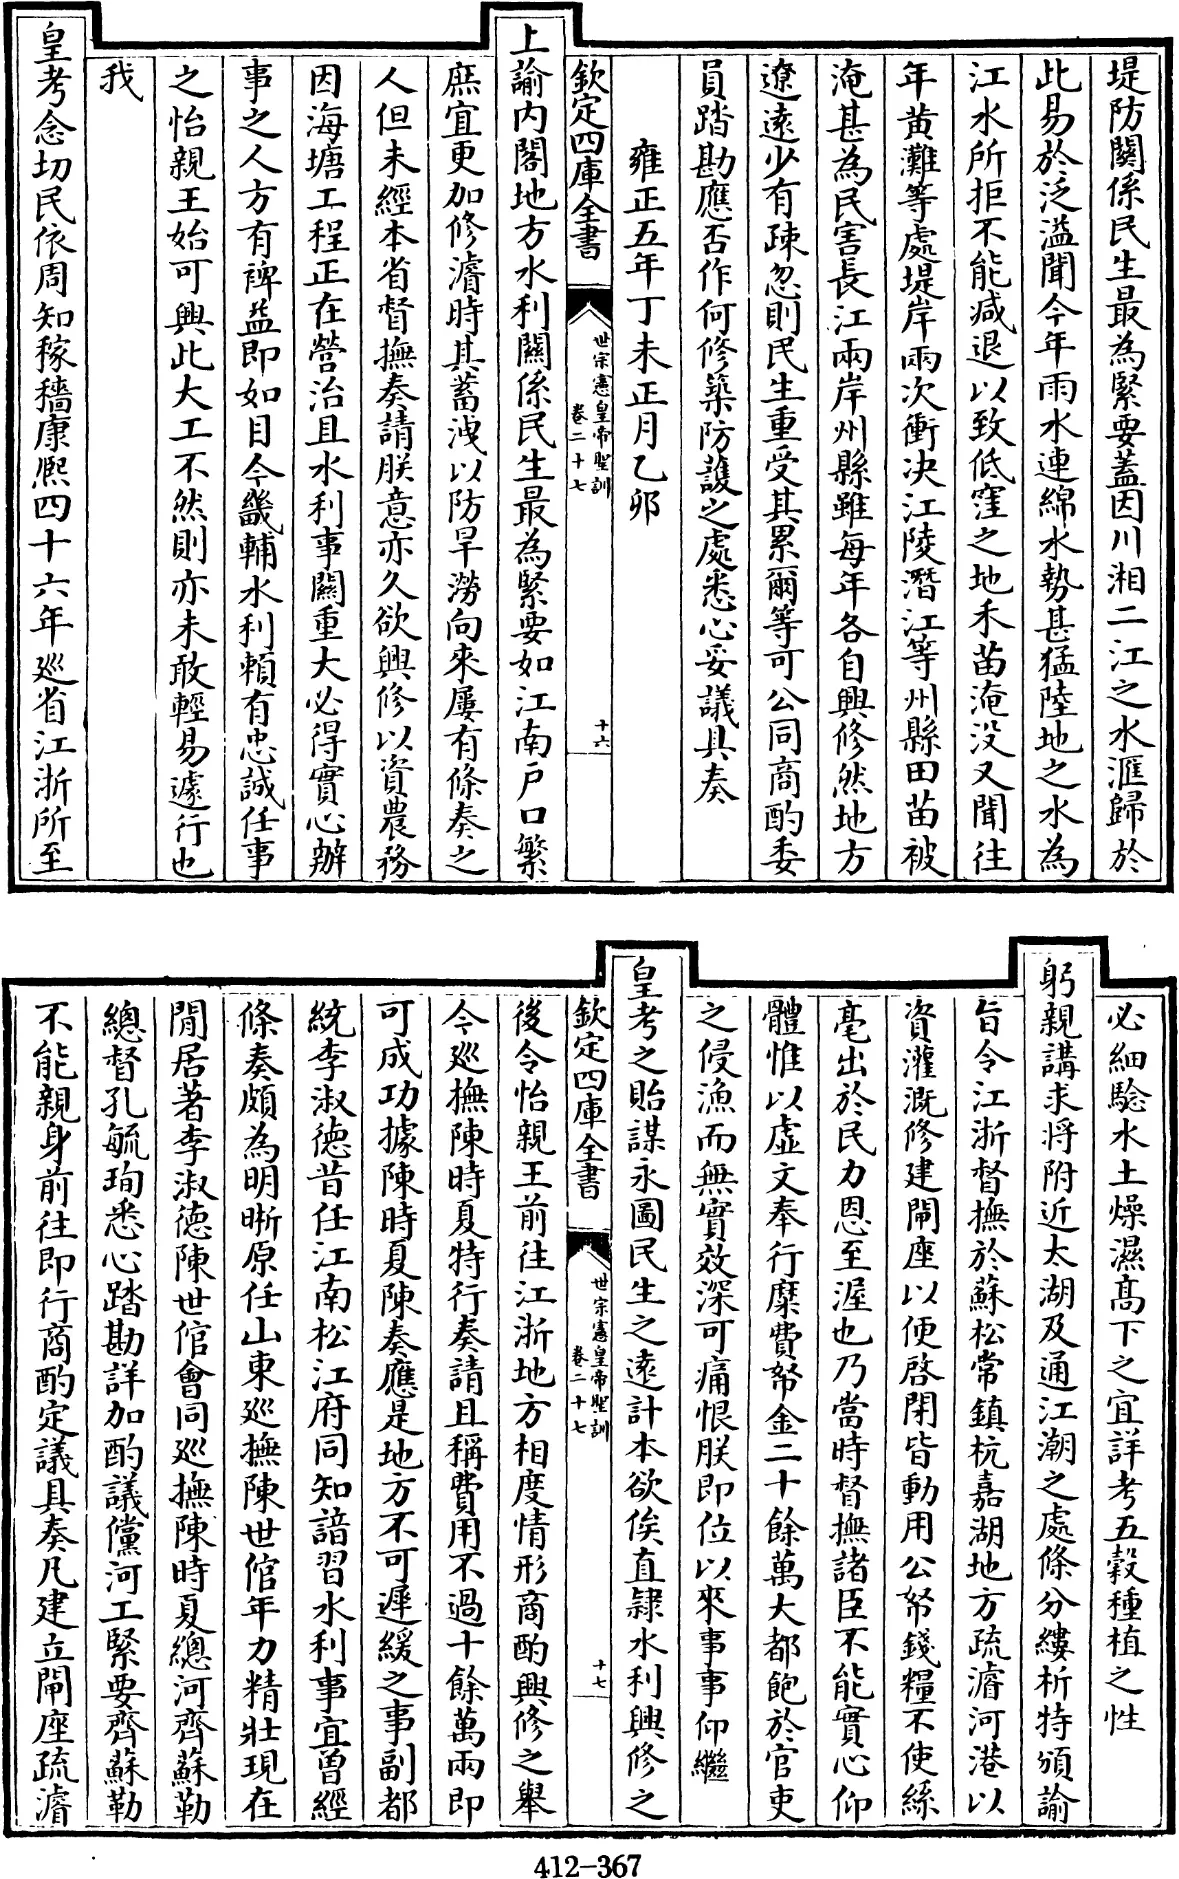 堤防關係民生最為緊要蓋因川湘二江之水滙歸於
此易於泛溢聞今年雨水連綿水勢甚猛陸地之水為
江水所拒不能减退以致低窪之地禾苗淹没又聞往
年黄灘等處堤岸兩次衝决江陵潛江等州縣田苗被
淹甚為民害長江兩岸州縣雖每年各自興修然地方
遼遠少有疎忽則民生重受其累爾等可公同商酌委
員踏勘應否作何修築防護之處悉心妥議具奏
雍正五年丁未正月乙卯
欽定四庫全書
世宗憲皇帝聖訓
卷二十七
十六
上諭内閣地方水利關係民生最為緊要如江南户口繁
庶宜更加修濬時其蓄洩以防旱澇向來屢有條奏之
人但未經本省督撫奏請朕意亦久欲興修以資農務
因海塘工程正在營治且水利事關重大必得實心辦
事之人方有裨益即如目今畿輔水利賴有忠誠任事
之怡親王始可興此大工不然則亦未敢輕易遽行也
我
皇考念切民依周知稼穡康熙四十六年廵省江浙所至
必細驗水土燥濕髙下之宜詳考五穀種植之性
躬親講求将附近太湖及通江潮之處條分縷析特頒諭
旨令江浙督撫於蘇松常鎮杭嘉湖地方疏濬河港以
資灌溉修建閘座以便啓閉皆動用公帑錢糧不使絲
毫出於民力恩至渥也乃當時督撫諸臣不能實心仰
體惟以虛文奉行糜費帑金二十餘萬大都飽於官吏
之侵漁而無實效深可痛恨朕即位以來事事仰繼
皇考之貽謀永圖民生之遠計本欲俟直隸水利興修之
欽定四庫全書
世宗憲皇帝聖訓
卷二十七
十七
後令怡親王前往江浙地方相度情形商酌興修之舉
今廵撫陳時夏特行奏請且稱費用不過十餘萬兩即
可成功據陳時夏陳奏應是地方不可遲緩之事副都
統李淑德昔任江南松江府同知諳習水利事宜曾經
條奏頗為明晰原任山東廵撫陳世倌年力精壯現在
閒居著李淑德陳世倌會同廵撫陳時夏總河齊蘇勒
總督孔毓珣悉心踏勘詳加酌議儻河工緊要齊蘇勒
不能親身前往即行商酌定議具奏凡建立閘座疏濬
412-367